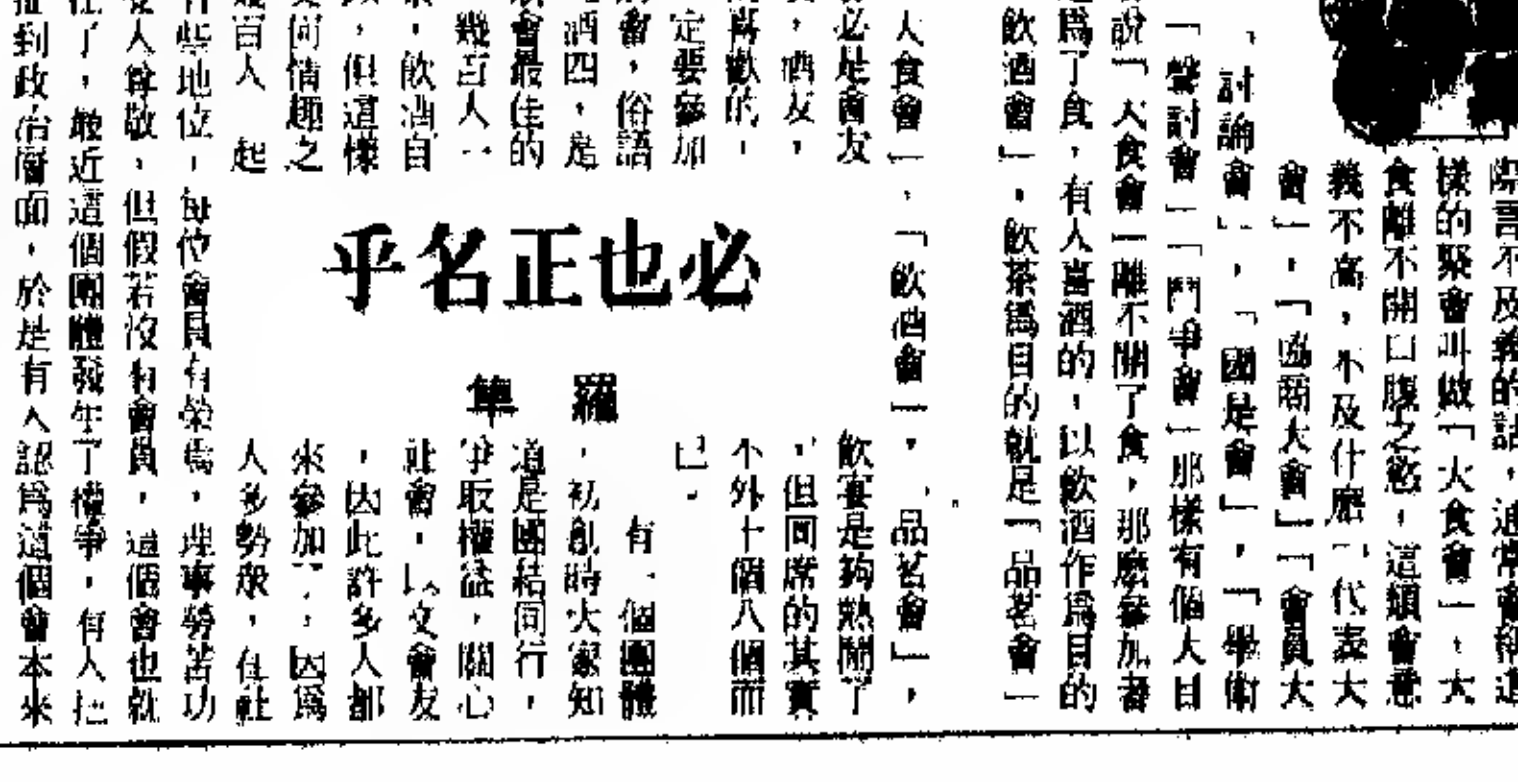 際言不及義的話，通常會
樣的聚會叫做「大食會」，大
食離不開口腹之慾，這類會意
義不高，不及什麼「代表大
會」，「協商大會」「會員大
、討論會」，「國是會」，「學術
「聲討會」「鬥爭會」那樣有個大目
說「大食會」離不開了食，那麼參加者
爲了食，有人喜酒的，以飲酒作爲目的
飲酒會」，飲茶爲目的就是「品茗會」
大食會」，「飲酒會」，「品茗會」，
必也正名乎
羅隼
必是會友
，酒友，
喜歡的，
定要參加
會，俗語
酒四，是
會最佳的
幾百人一
，飲酒自
，但這樣
何情趣之
百人一起
飲宴是夠熱鬧了
，但同席的其實
不外十個八個而
已。
有一個團體
，初創時大家知
道是團結同行，
爭取權益，關心
社會，以文會友
，因此許多人都
來參加了，因爲
人多勢衆，在社
些地位，每位會員有榮焉，理事勞苦功
人尊敬，但假若沒有會員，這個會也就
了，最近這個團體發生了權爭，有人把
扯到政治層面，於是有人認爲這個會本來